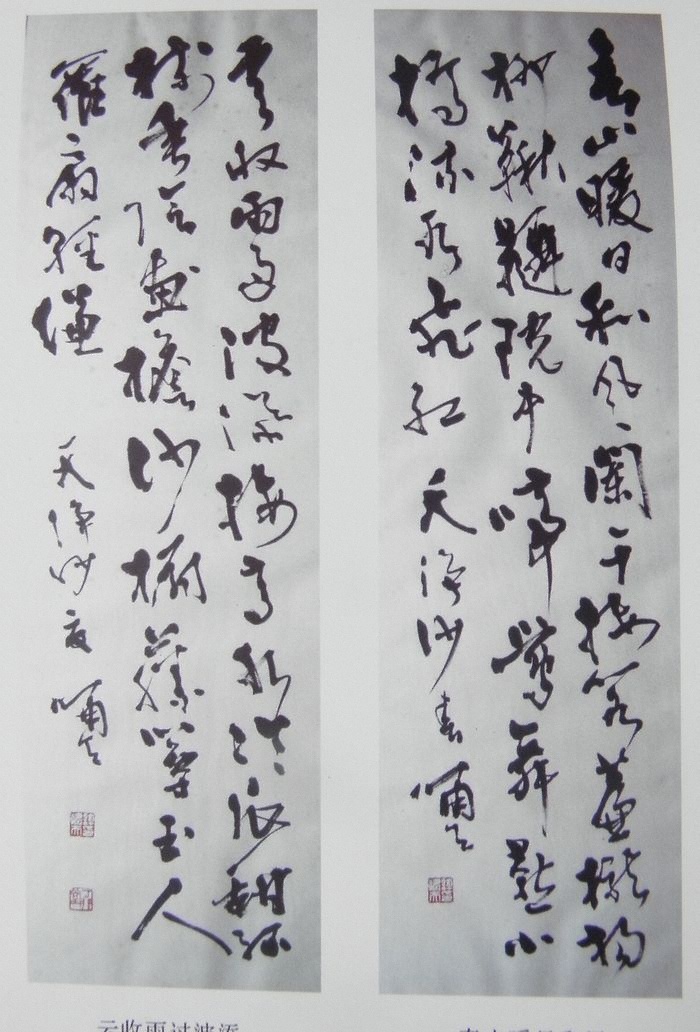 春山暖日和风阑干楼阁簾櫳杨
柳鞦韆院中啼莺舞燕小
橋流水飛红 天净沙春
云收雨过波添楼高水冷瓜甜绿
树垂阴画檐沙橱藤簟玉人
羅扇輕縑
天净沙夏
云收雨过波添